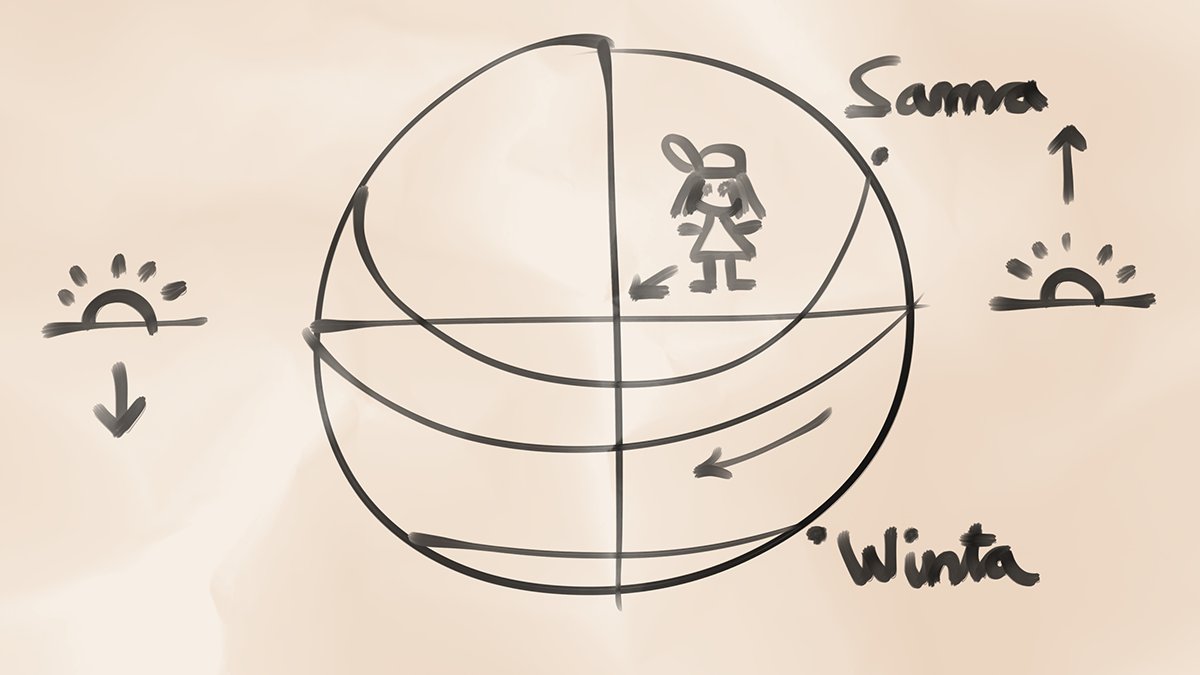 Samma
Winta